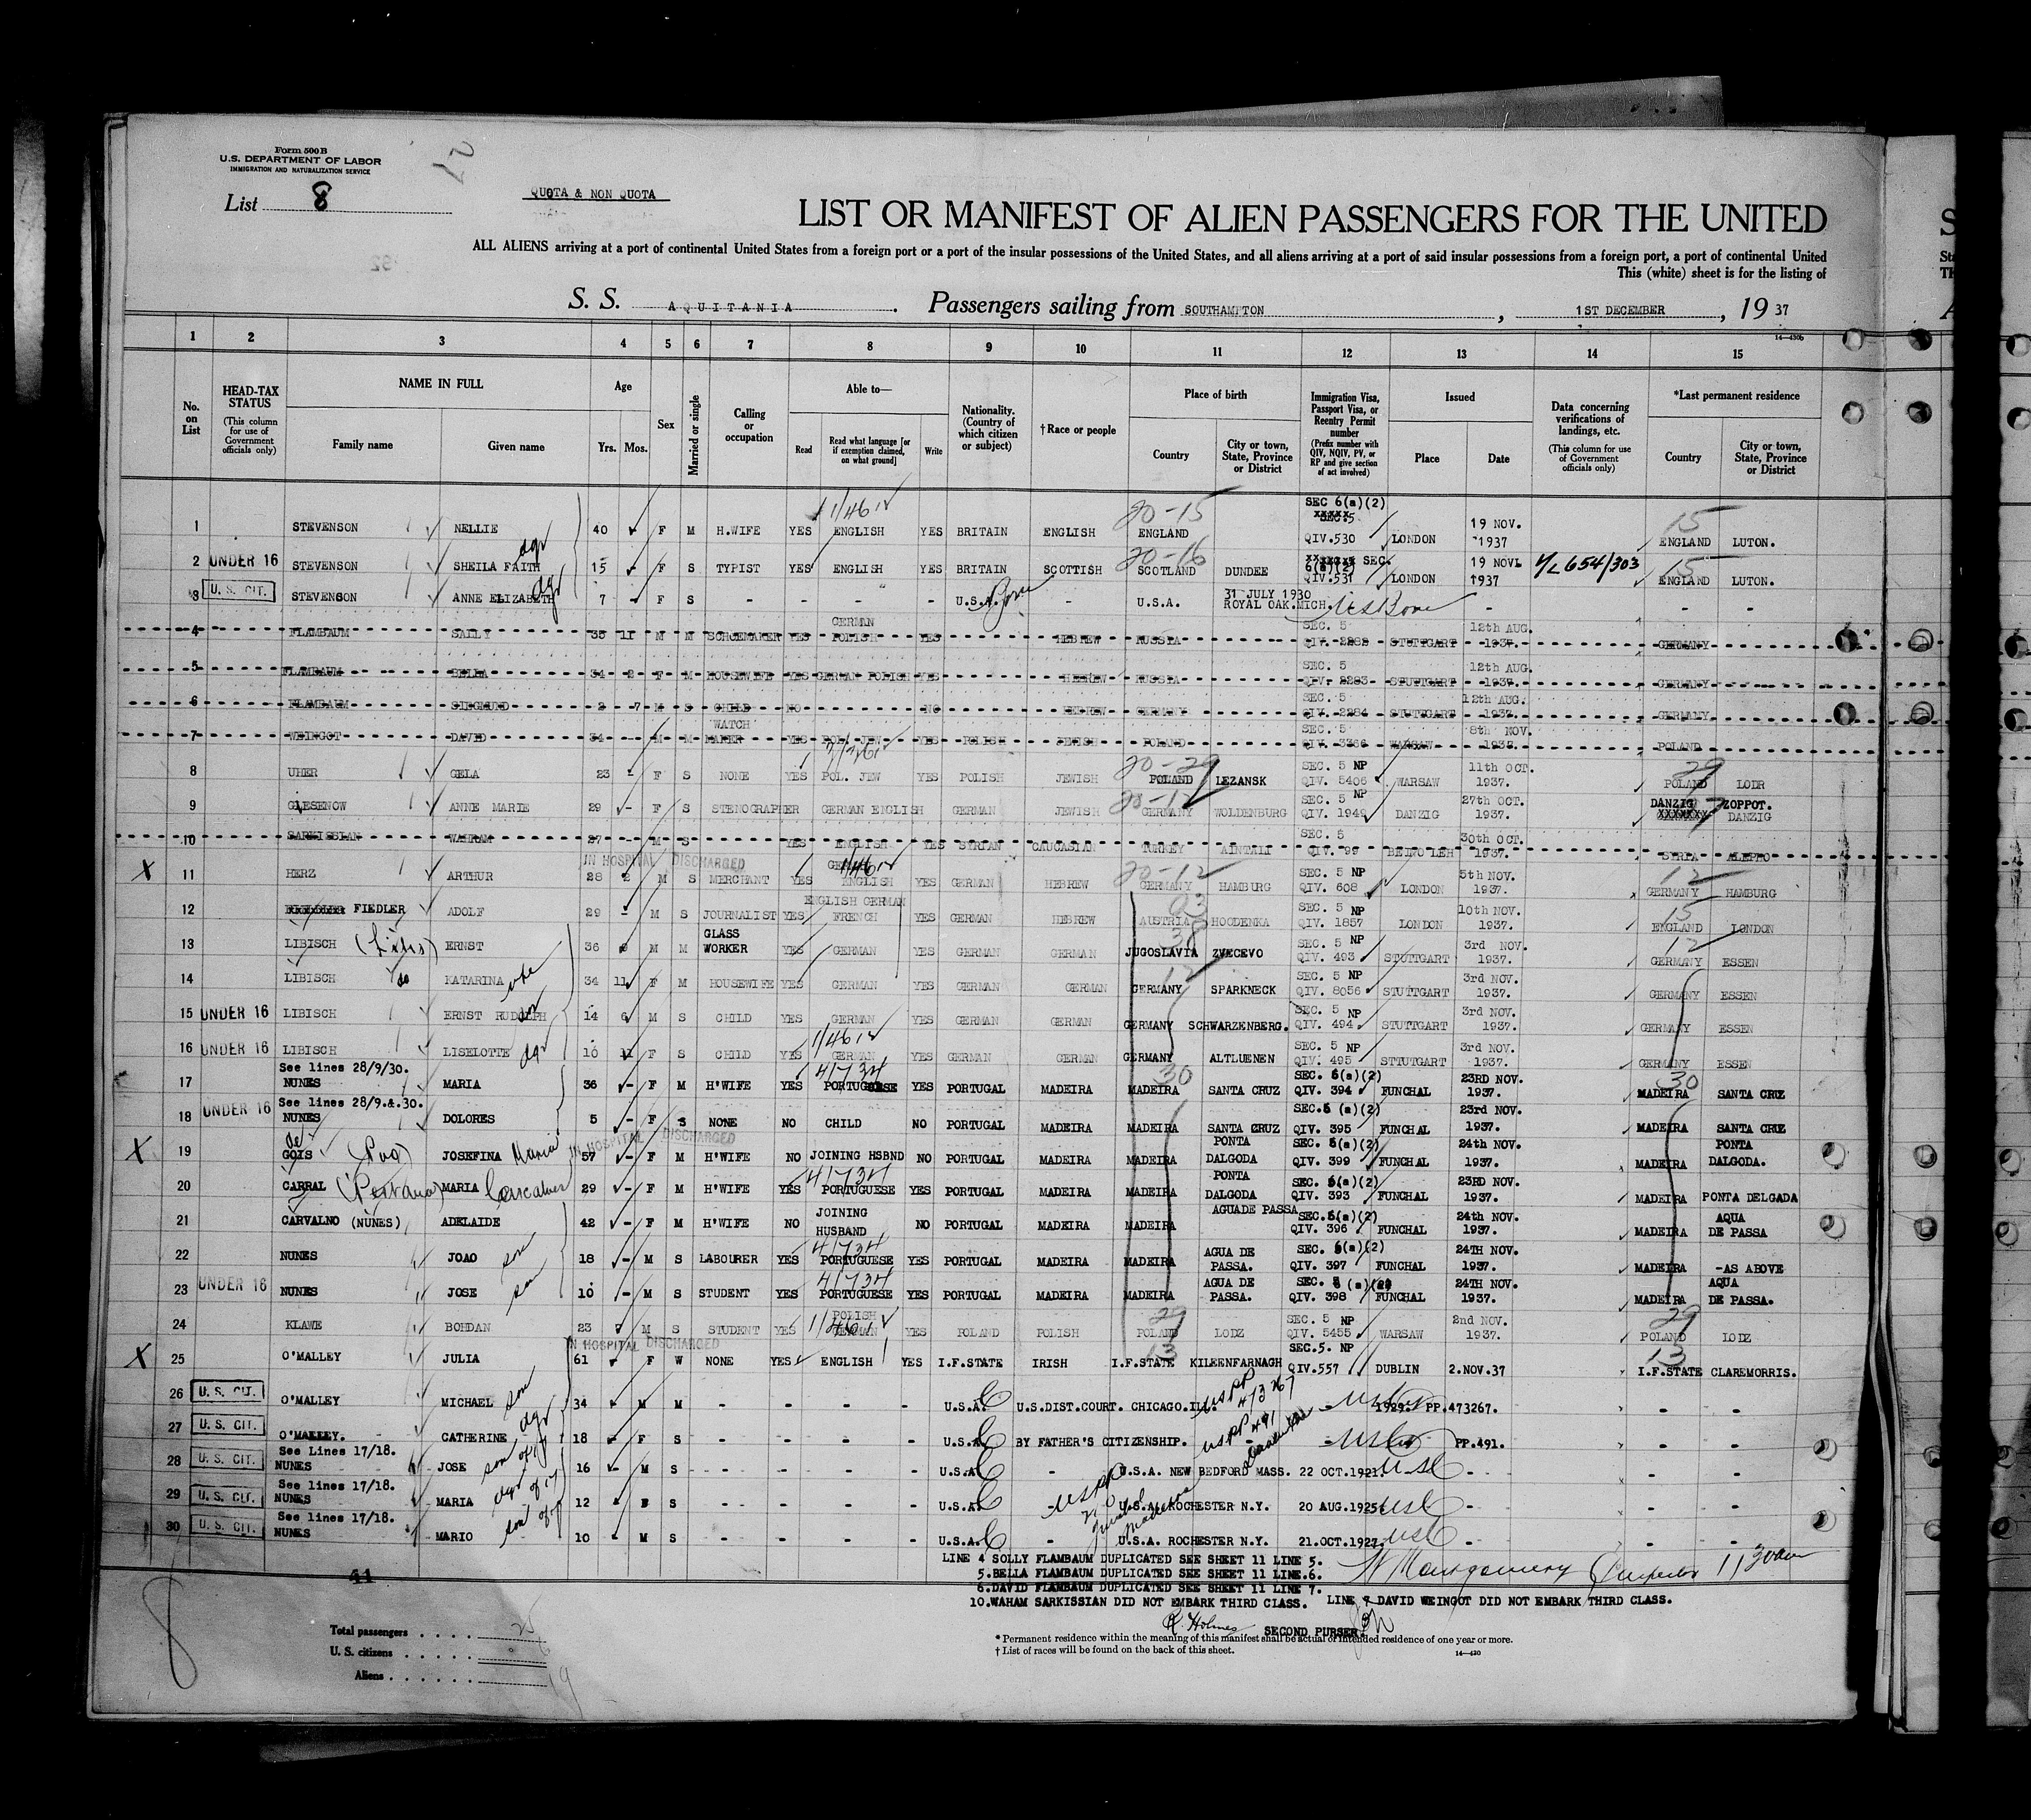 Form 500 B
U.S. DEPARTMENT OF LABOR
IMMIGRATION AND NATURALIZATION SERVICE
List 8
QUOTA & NON QUOTA
LIST OR MANIFEST OF ALIEN PASSENGERS FOR THE UNITED
ALL ALIENS arriving at a port of continental United States from a foreign port or a port of the insular possessions of the United States, and all aliens arriving at a port of said insular possessions from a foreign port, a port of continental United
This (white) sheet is for the listing of
S. S. AQUITANIA. Passengers sailing from SOUTHAMPTON, 1ST DECEMBER, 19 37
14—430b
1 2 3 4 5 6 7 8 9 10 11 12 13 14 15
No. on List
HEAD-TAX STATUS (This column for use of Government officials only)
NAME IN FULL Family name Given name
Age Yrs. Mos.
Sex
Married or single
Calling or occupation
Able to— Read Read what language [or if exemption claimed, on what ground] Write
Nationality. (Country of which citizen or subject)
† Race or people
Place of birth Country City or town, State, Province or District
Immigration Visa, Passport Visa, or Reentry Permit number (Prefix number with QIV, NQIV, PV, or RP and give section of act involved)
Issued Place Date
Data concerning verifications of landings, etc. (This column for use of Government officials only)
*Last permanent residence Country City or town, State, Province or District
1 STEVENSON NELLIE 40 F M H.WIFE YES ENGLISH YES BRITAIN ENGLISH 20-15 ENGLAND SEC 6(a)(2) QIV.530 LONDON 19 NOV. 1937 15 ENGLAND LUTON.
2 UNDER 16 STEVENSON SHEILA FAITH dgr 15 - F S TYPIST YES ENGLISH YES BRITAIN SCOTTISH 20-16 SCOTLAND DUNDEE SEC. 6(a)(2) QIV.531 LONDON 19 NOV. 1937 V/L 654/303 15 ENGLAND LUTON.
3 U. S. CIT. STEVENSON ANNE ELIZABETH dgr 7 - F S - - - - U.S.A. Born - U.S.A. 31 JULY 1930 ROYAL OAK.MICH. US Born - - -
4 FLAMBAUM SALLY 35 11 M M SCHOEMAKER YES GERMAN POLISH YES HEBREW RUSSIA SEC. 5 QIV. 2282 STUTTGART 12th AUG. 1937. GERMANY
5 FLAMBAUM BELLA 34 2 F M HOUSEWIFE YES GERMAN POLISH YES HEBREW RUSSIA SEC. 5 QIV. 2283 STUTTGART 12th AUG. 1937. GERMANY
6 FLAMBAUM SIEGMUND 2 7 M S CHILD NO NO HEBREW GERMANY SEC. 5 QIV. 2284 STUTTGART 12th AUG. 1937. GERMANY
7 WEINGOT DAVID 34 - M M WATCH MAKER YES POL. JEW YES POLISH JEWISH POLAND SEC. 5 QIV. 3366 WARSAW 8th NOV. POLAND
8 UHER GELA 23 - F S NONE YES POL. JEW YES POLISH JEWISH 20-29 POLAND LEZANSK SEC. 5 NP QIV. 5406 WARSAW 11th OCT. 1937. 29 POLAND LODR
9 GLESENOW ANNE MARIE 29 - F S STENOGRAPHER GERMAN ENGLISH GERMAN JEWISH 20-12 GERMANY WOLDENBURG SEC. 5 NP QIV. 1949 DANZIG 27th OCT. 1937. DANZIG XXXXXXX ZOPPOT. DANZIG
10 SARKISSIAN WAHRAM 27 - M S YES ENGLISH YES SYRIAN CAUCASIAN TURKEY AINTAIL SEC. 5 QIV. 99 30th OCT. 1937. SYRIA ALEPPO
IN HOSPITAL DISCHARGED
X 11 HERZ ARTHUR 28 2 M S MERCHANT YES ENGLISH YES GERMAN HEBREW 20-12 GERMANY HAMBURG SEC. 5 NP QIV. 608 LONDON 5th NOV. 1937. 12 GERMANY HAMBURG
12 FIEDLER ADOLF 29 - M S JOURNALIST YES ENGLISH GERMAN FRENCH YES GERMAN HEBREW 03 AUSTRIA HOODENKA SEC. 5 NP QIV. 1857 LONDON 10th NOV. 1937. 15 ENGLAND LONDON
13 LIBISCH ERNST 36 M M GLASS WORKER YES GERMAN YES GERMAN GERMAN 38 JUGOSLAVIA ZVECEVO SEC. 5 NP QIV. 493 STUTTGART 3rd NOV. 1937. 12 GERMANY ESSEN
14 LIBISCH do KATARINA wife 34 11 F M HOUSEWIFE YES GERMAN YES GERMAN GERMAN 12 GERMANY SPARKNECK SEC. 5 NP QIV. 8056 STUTTGART 3rd NOV. 1937. GERMANY ESSEN
15 UNDER 16 LIBISCH ERNST RUDOLPH son 14 6 M S CHILD YES GERMAN YES GERMAN GERMAN GERMANY SCHWARZENBERG. SEC. 5 NP QIV. 494 STUTTGART 3rd NOV. 1937. GERMANY ESSEN
16 UNDER 16 LIBISCH LISELOTTE dgr 10 11 F S CHILD YES GERMAN YES GERMAN GERMAN GERMANY ALTLUENEN SEC. 5 NP QIV. 495 STTUTGART 3rd NOV. 1937. GERMANY ESSEN
See lines 28/9/30.
17 NUNES MARIA 36 - F M H'WIFE YES PORTUGUESE YES PORTUGAL MADEIRA 30 MADEIRA SANTA CRUZ SEC. 6(a)(2) QIV. 394 FUNCHAL 23RD NOV. 1937. 30 MADEIRA SANTA CRUZ
See lines 28/9.&.30.
18 UNDER 16 NUNES DOLORES 5 - F S NONE NO CHILD NO PORTUGAL MADEIRA MADEIRA SANTA CRUZ SEC.6 (a)(2) QIV. 395 FUNCHAL 23rd NOV. 1937. MADEIRA SANTA CRUZ
IN HOSPITAL DISCHARGED
X 19 de GOIS JOSEFINA Maria 57 - F M H'WIFE NO JOINING HSBND NO PORTUGAL MADEIRA MADEIRA PONTA DALGODA SEC. 6(a)(2) QIV. 399 FUNCHAL 24th NOV. 1937. MADEIRA PONTA DALGODA.
20 CARRAL MARIA 29 - F M H'WIFE YES PORTUGUESE YES PORTUGAL MADEIRA MADEIRA PONTA DALGODA SEC. 6(a)(2) QIV. 393 FUNCHAL 23RD NOV. 1937. MADEIRA PONTA DELGADA
21 CARVALNO (NUNES) ADELAIDE 42 - F M H'WIFE NO JOINING HUSBAND NO PORTUGAL MADEIRA MADEIRA AGUADE PASSA SEC.6(a)(2) QIV. 396 FUNCHAL 24th NOV. 1937. MADEIRA AQUA DE PASSA
22 NUNES JOAO son 18 - M S LABOURER YES PORTUGUESE YES PORTUGAL MADEIRA MADEIRA AGUA DE PASSA. SEC. 6(a)(2) QIV. 397 FUNCHAL 24TH NOV. 1937. MADEIRA -AS ABOVE
23 UNDER 16 NUNES JOSE son 10 - M S STUDENT YES PORTUGUESE YES PORTUGAL MADEIRA MADEIRA AGUA DE PASSA. SEC. 6 (a)(2) QIV. 398 FUNCHAL 24TH NOV. 1937. MADEIRA AQUA DE PASSA.
24 KLAWE BOHDAN 23 M S STUDENT YES POLISH GERMAN YES POLAND POLISH 29 POLAND LODZ SEC. 5 NP QIV. 5455 WARSAW 2nd NOV. 1937. 29 POLAND LODZ
IN HOSPITAL DISCHARGED
X 25 O'MALLEY JULIA 61 F W NONE YES ENGLISH YES I.F.STATE IRISH 13 I.F.STATE KILEENFARNAGH SEC.5. NP QIV.557 DUBLIN 2.NOV.37 13 I.F.STATE CLAREMORRIS.
26 U. S. CIT. O'MALLEY MICHAEL son 34 M M - - - - U.S.A. U.S.DIST.COURT. CHICAGO.ILL. 1929. PP.473267. - -
27 U. S. CIT. O'MALLEY. CATHERINE dgr 18 - F S - - - - U.S.A. BY FATHER'S CITIZENSHIP. - PP.491. - -
See Lines 17/18.
28 U. S. CIT. NUNES JOSE son of 17 16 - M S - - - - U.S.A. - U.S.A. NEW BEDFORD MASS. 22 OCT.1921. USC - - -
See lines 17/18.
29 U. S. CIT. NUNES MARIA dgr of 17 12 S - - - - U.S.A. - U.S.A. ROCHESTER N.Y. 20 AUG.1925 USC - - -
See lines 17/18.
30 U. S. CIT. NUNES MARIO son of 17 10 M S - - - - U.S.A. - U.S.A. ROCHESTER N.Y. 21.OCT.1927. USC - - -
LINE 4 SOLLY FLAMBAUM DUPLICATED SEE SHEET 11 LINE 5.
5.BELLA FLAMBAUM DUPLICATED SEE SHEET 11 LINE.6.
Montgomery Inspector 11 30am
6.DAVID FLAMBAUM DUPLICATED SEE SHEET 11 LINE 7.
10.WAHAM SARKISSIAN DID NOT EMBARK THIRD CLASS. LINE 7 DAVID WEINGOT DID NOT EMBARK THIRD CLASS.
R. Holmes SECOND PURSER.
8
Total passengers 25
U. S. citizens 6
Aliens 19
* Permanent residence within the meaning of this manifest shall be actual or intended residence of one year or more.
† List of races will be found on the back of this sheet.
14—430